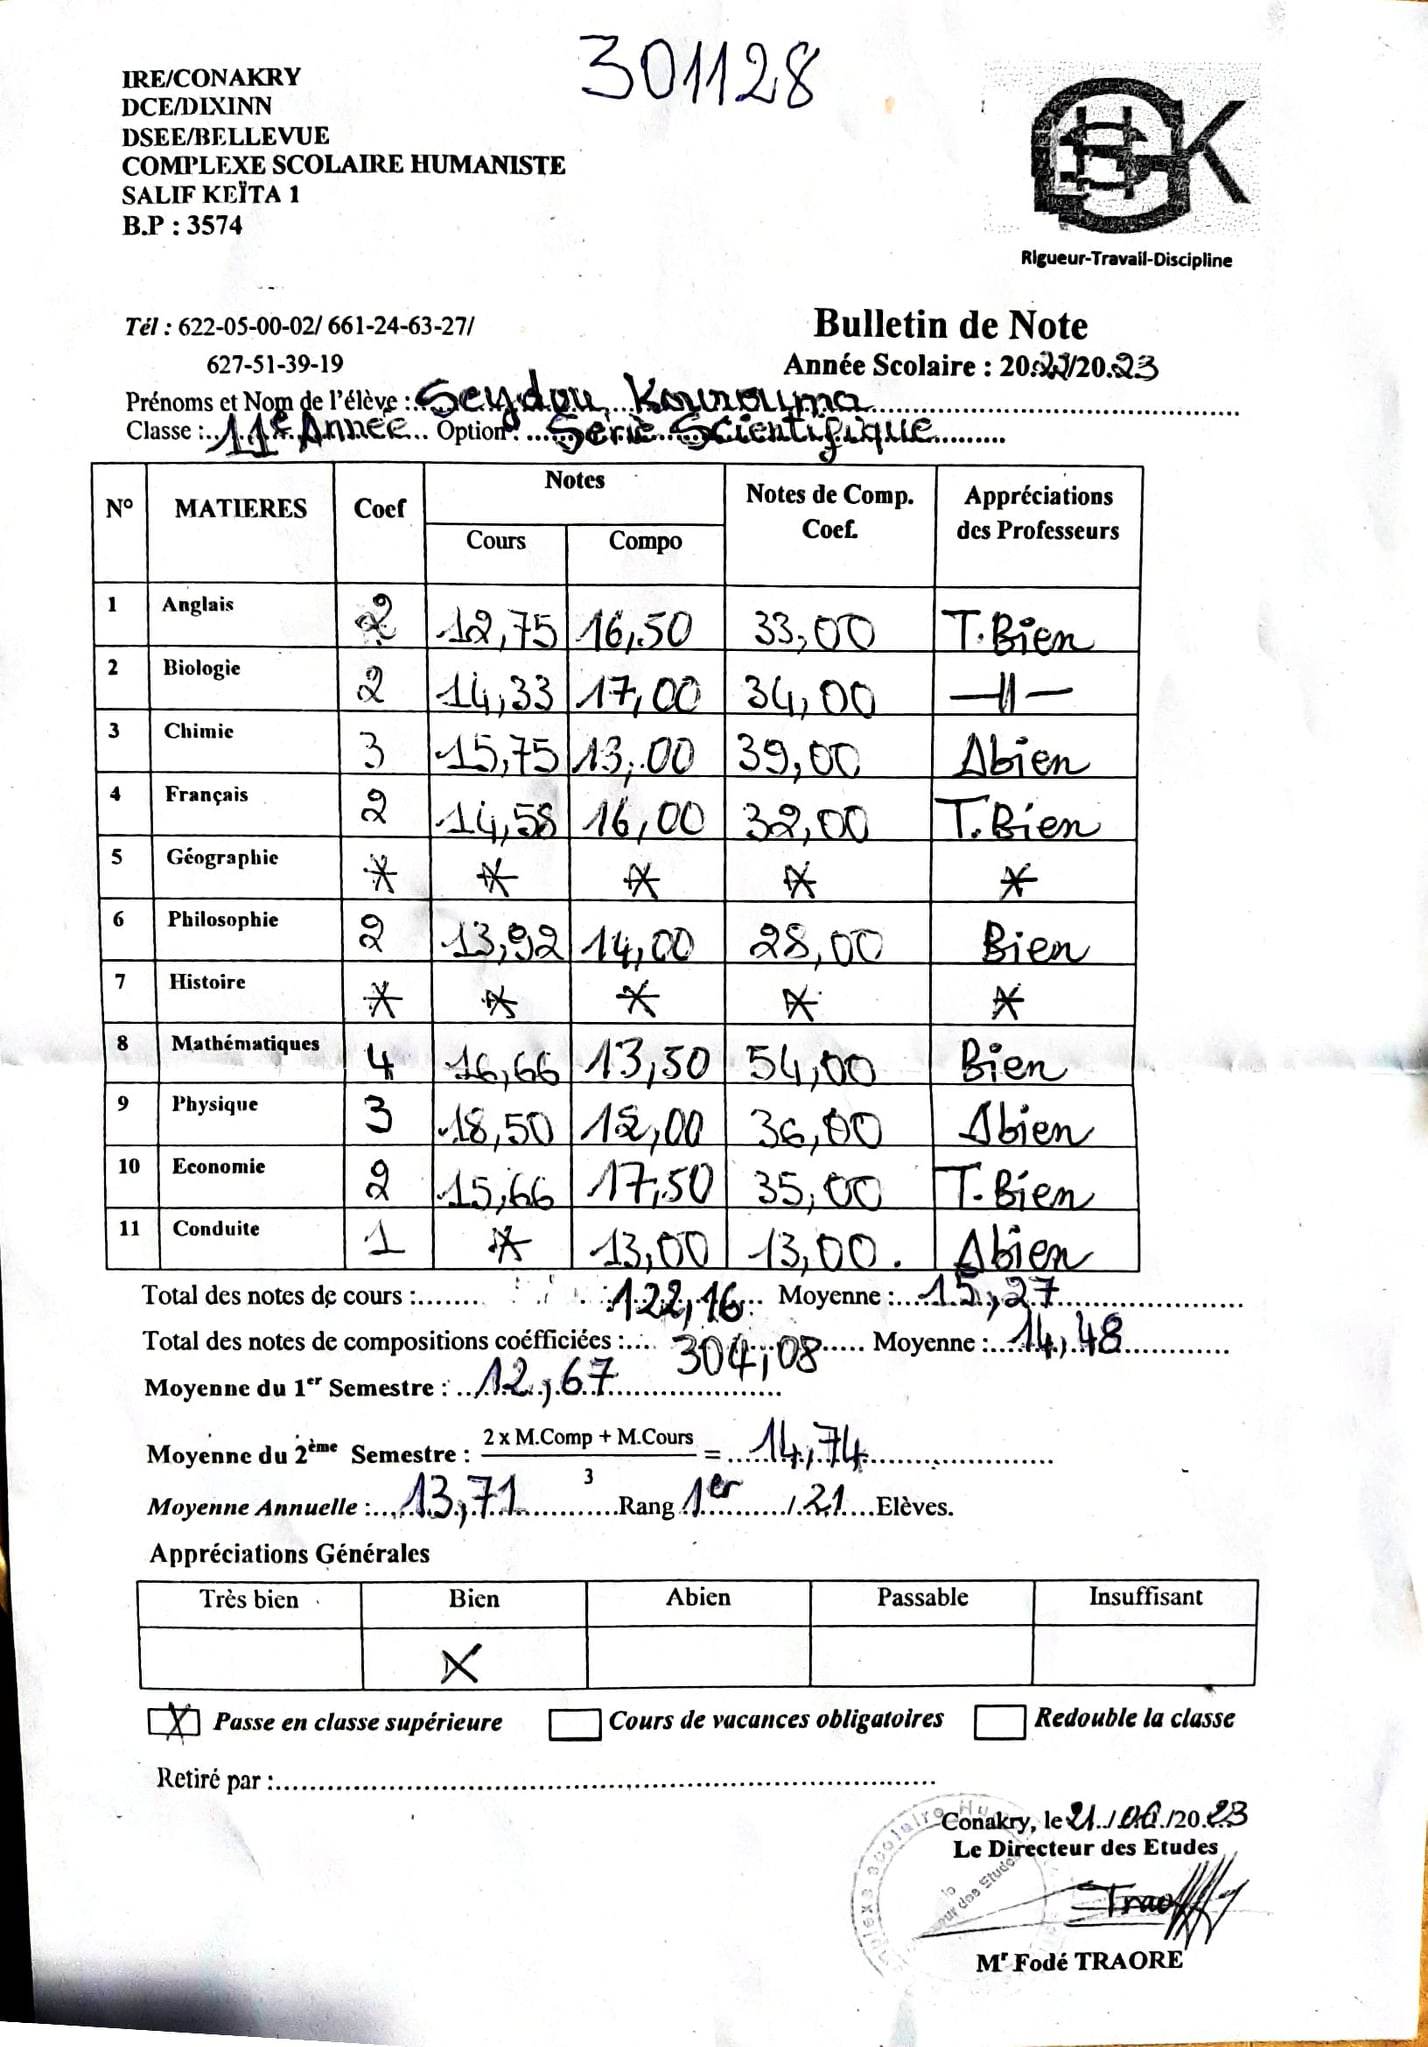 301128
IRE/CONAKRY
DCE/DIXINN
DSEE/BELLEVUE
COMPLEXE SCOLAIRE HUMANISTE
SALIF KEÏTA 1
B.P : 3574
Rigueur-Travail-Discipline
Tél : 622-05-00-02/ 661-24-63-27/
627-51-39-19
Bulletin de Note
Année Scolaire : 2022/2023
Prénoms et Nom de l'élève : Seydou Kourouma
Classe : 11e Année Option : Série Scientifique
N° MATIERES Coef Notes Notes de Comp. Coef. Appréciations des Professeurs
Cours Compo
1 Anglais 2 12,75 16,50 33,00 T.Bien
2 Biologie 2 14,33 17,00 34,00 —//—
3 Chimie 3 15,75 13,00 39,00 Abien
4 Français 2 14,58 16,00 32,00 T.Bien
5 Géographie * * * * *
6 Philosophie 2 13,92 14,00 28,00 Bien
7 Histoire * * * * *
8 Mathématiques 4 16,66 13,50 54,00 Bien
9 Physique 3 18,50 12,00 36,00 Abien
10 Economie 2 15,66 17,50 35,00 T.Bien
11 Conduite 1 * 13,00 13,00. Abien
Total des notes de cours : 122,16 Moyenne : 15,27
Total des notes de compositions coéfficiées : 304,08 Moyenne : 14,48
Moyenne du 1er Semestre : 12,67
Moyenne du 2ème Semestre : 2 x M.Comp + M.Cours / 3 = 14,74
Moyenne Annuelle : 13,71 Rang 1er / 21 Elèves.
Appréciations Générales
Très bien Bien Abien Passable Insuffisant
X
X Passe en classe supérieure Cours de vacances obligatoires Redouble la classe
Retiré par :
Conakry, le 21/06/2023
Le Directeur des Etudes
Mr Fodé TRAORE